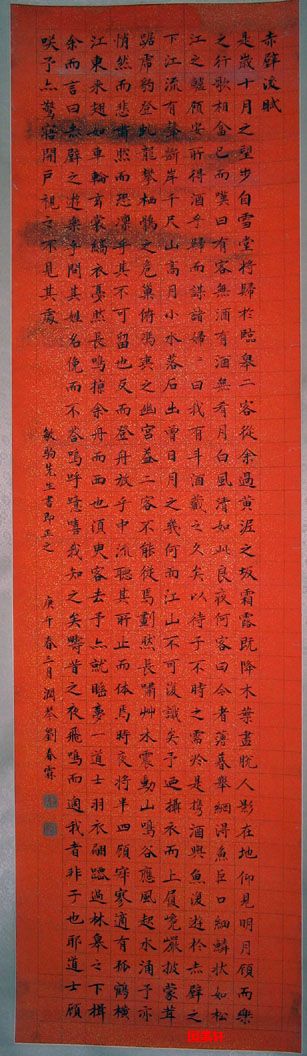 赤壁後賦
是歲十月之望步自雪堂將歸於臨皋二客從余過黃泥之坂霜露既降木葉盡脫人影在地仰見明月顧而樂
之行歌相答已而嘆曰有客無酒有酒無肴月白風清如此良夜何客曰今者薄暮舉網得魚巨口細鱗狀如松
江之鱸顧安所得酒乎歸而謀諸婦婦曰我有斗酒藏之久矣以待子不時之需於是攜酒與魚復遊於赤壁之
下江流有聲斷岸千尺山高月小水落石出曾日月之幾何而江山不可復識矣予迺攝衣而上履巉巖披蒙茸
踞虎豹登虬龍攀栖鶻之危巢俯馮夷之幽宮蓋二客不能從焉劃然長嘯艸木震動山鳴谷應風起水涌予亦
悄然而悲肅然而恐凜乎其不可留也反而登舟放乎中流聽其所止而休焉時夜將半四顧寂寥適有孤鶴橫
江東來翅如車輪玄裳縞衣戛然長鳴掠余舟而西也須臾客去予亦就睡夢一道士羽衣翩躚過林皋之下揖
余而言曰赤壁之遊樂乎問其姓名俛而不答嗚呼噫嘻我知之矣疇昔之夜飛鳴而過我者非子也耶道士顧
咲予亦驚寤開戶視之不見其處
敏駒先生書即正之
庚午春三月潤琴劉春霖